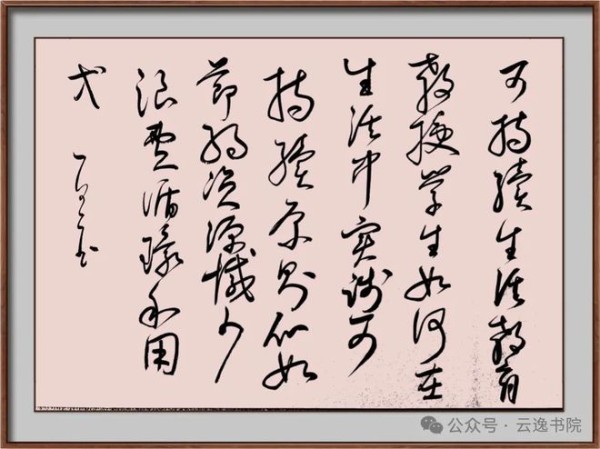 可持续生活教育
教授学生如何在
生活中实践可
持续原则例如
节约资源减少
浪费循环利用
公众号 · 云逸书院